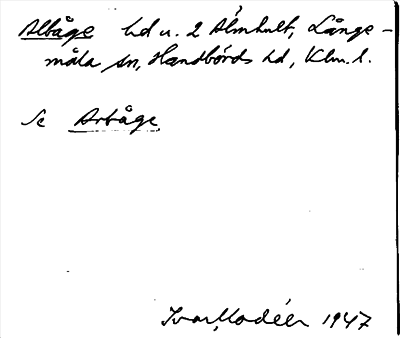 Albåge hd u. 2 Älmhult, Långe-
måla sn, Handbörds hd, Klm. l.
Se Arbåge
Ivar Modéer 1947